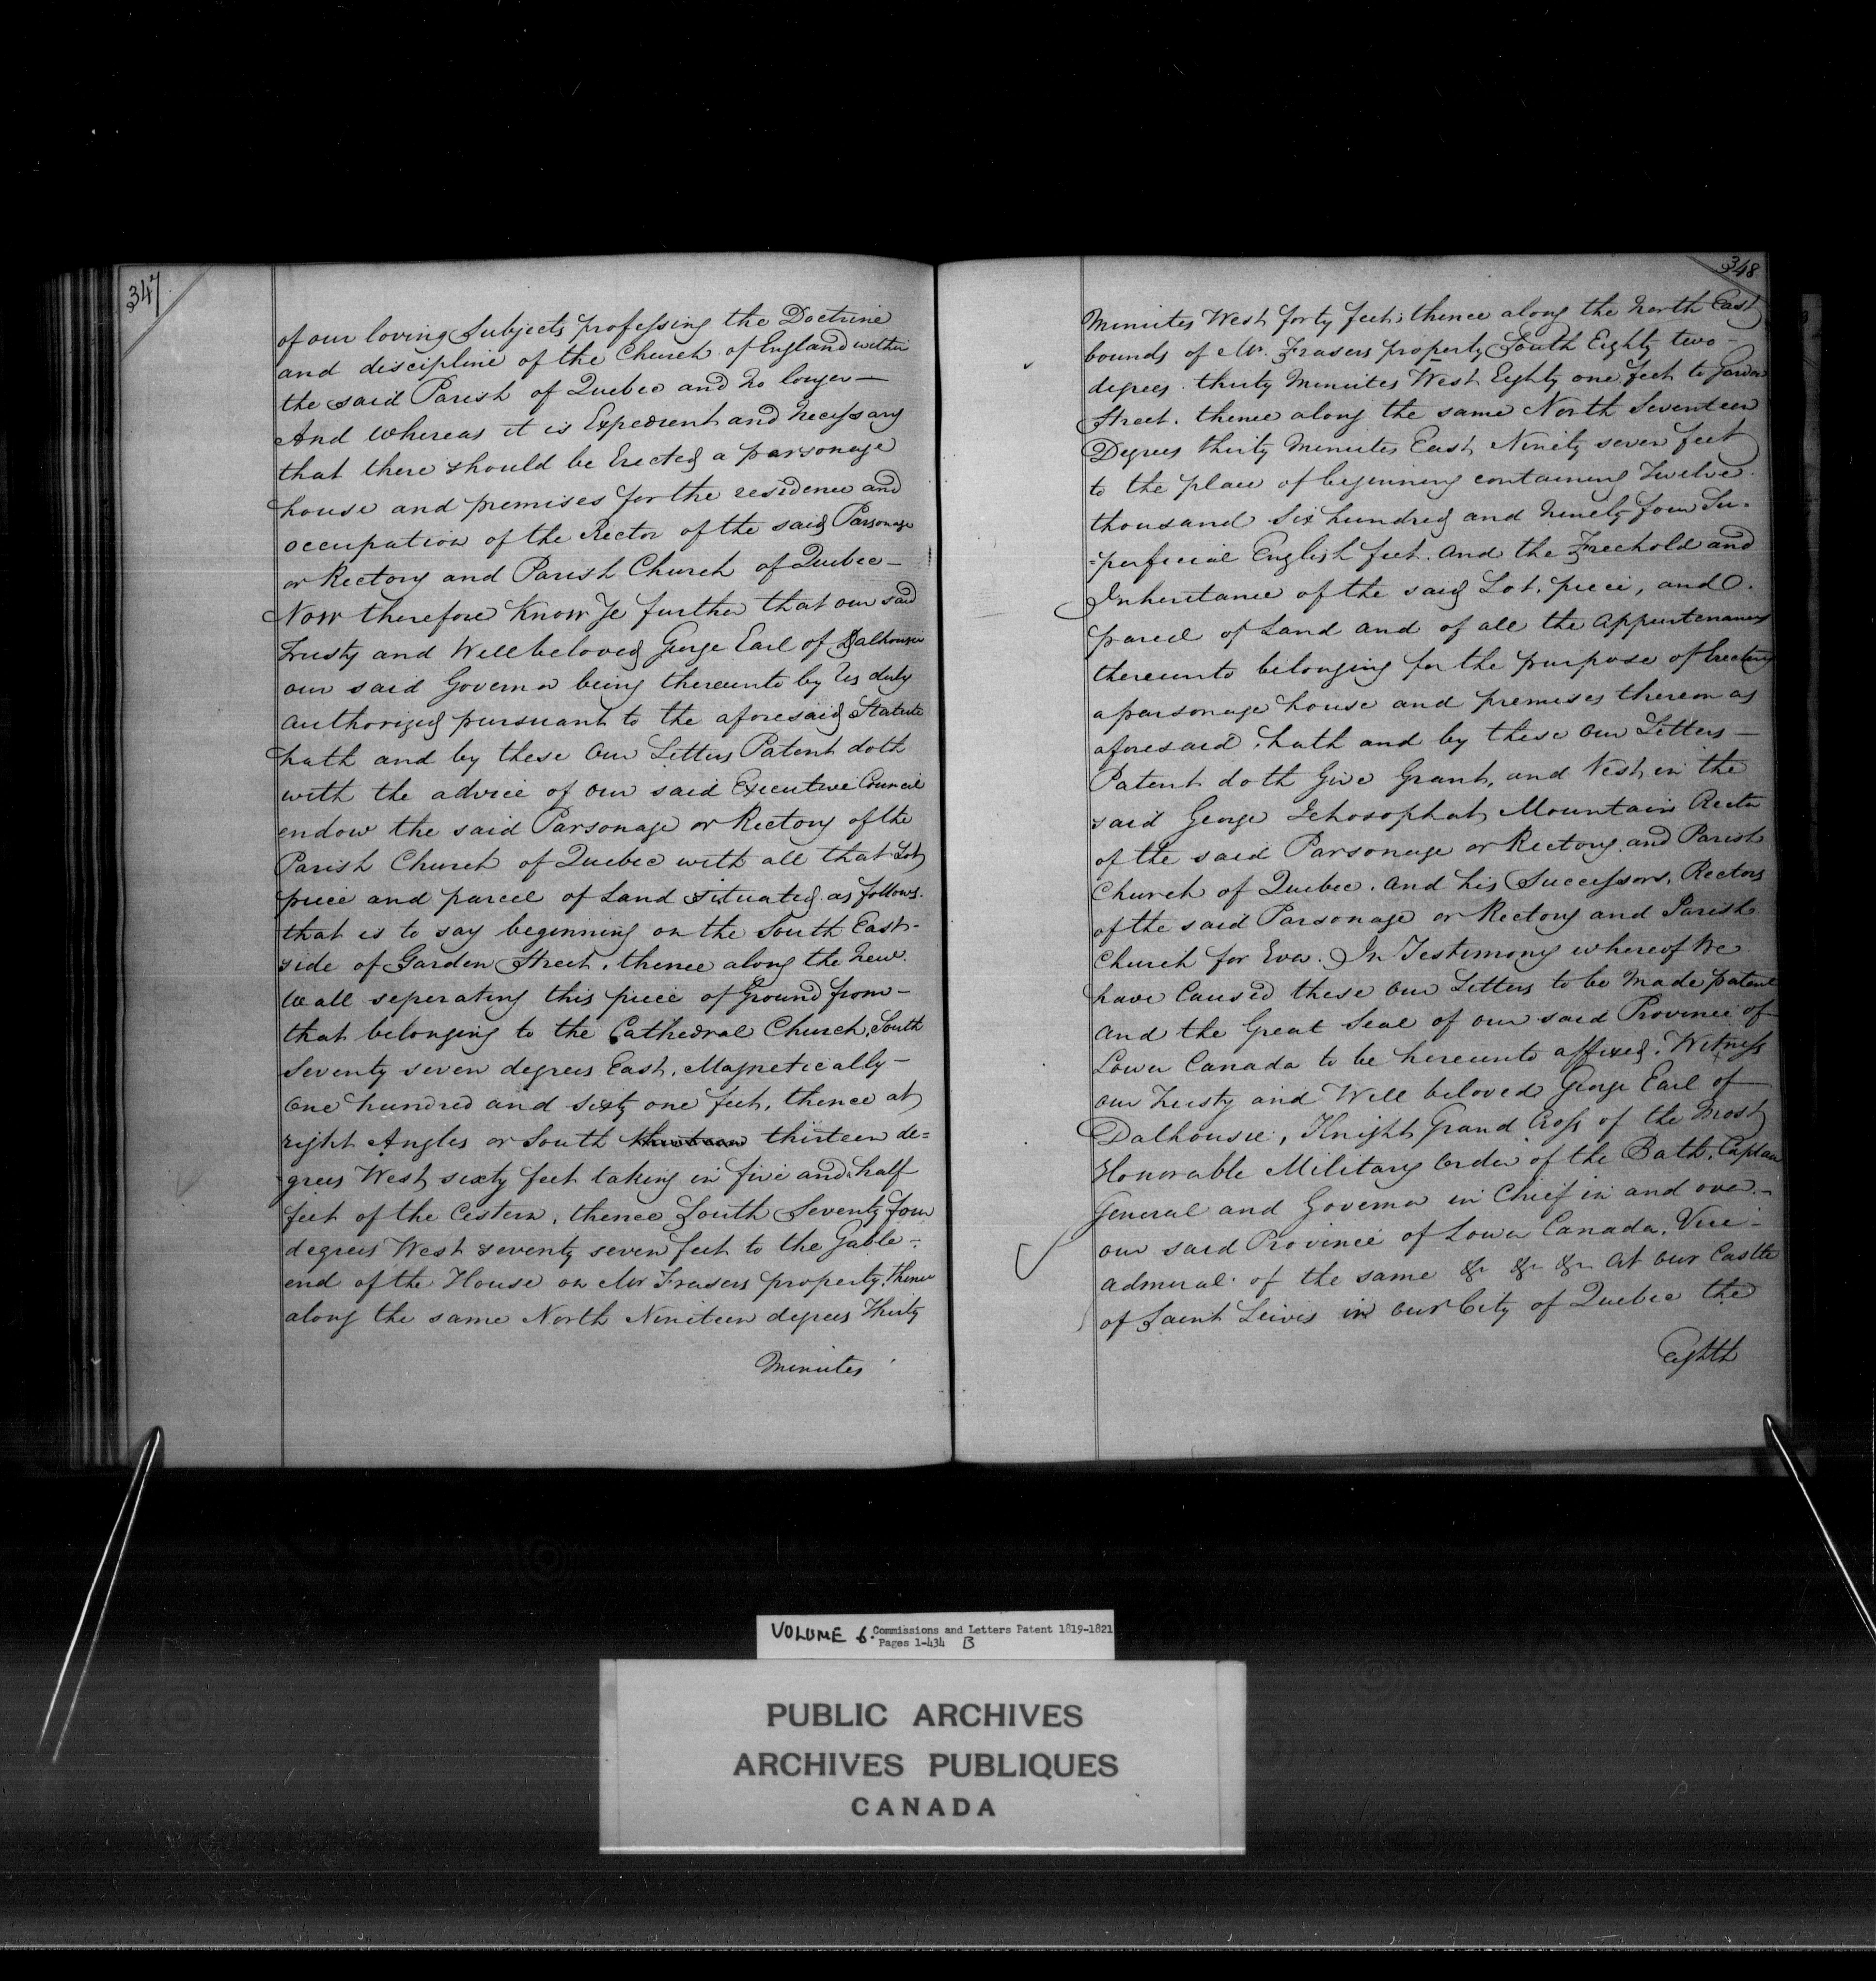 347
of our loving Subjects professing the Doctrine
and discipline of the Church of England within
the said Parish of Quebec and no longer —
And Whereas it is Expedient and necessary
that there should be Erected a parsonage
house and premises for the residence and
occupation of the Rector of the said Parsonage
or Rectory and Parish Church of Quebec —
Now therefore Know Ye further that our said
Trusty and Well beloved George Earl of Dalhousie
our said Governor being thereunto by Us duly
authorized pursuant to the aforesaid Statute
hath and by these Our Letters Patent doth
with the advice of our said Executive Council
endow the said Parsonage or Rectory of the
Parish Church of Quebec with all that Lot
piece and parcel of Land situated as follows.
that is to say beginning on the South East-
side of Garden Street, thence along the new.
Wall seperating this piece of Ground from —
that belonging to the Cathedral Church, South
Seventy seven degrees East, Magnetically —
One hundred and sixty one feet, thence at
right Angles or South thirteen de=
grees West sixty feet taking in five and half
feet of the Cestern, thence South Seventy four
degrees West seventy seven feet to the Gable =
end of the House on Mr Frasers property, thence
along the same North Nineteen degrees Thirty
Minutes
348
Minutes West forty feet; thence along the north East
bounds of Mr. Frasers property South Eighty two —
degrees thirty Minutes West Eighty one feet to Garden
Street. thence along the same North Seventeen
Degrees thirty Minutes East Ninety seven feet
to the place of beginning containing Twelve
thousand Six hundred and ninety four Su-
=perficial English feet. And the Freehold and
Inheritance of the said Lot, piece, and
parcel of Land and of all the Appurtenances
thereunto belonging for the purpose of Erecting
a parsonage house and premises thereon as
aforesaid, hath and by these Our Letters —
Patent doth Give Grant, and Vest in the
said George Jehosophat Mountain Rector
of the said Parsonage or Rectory and Parish
Church of Quebec. And his Successors, Rectors
of the said Parsonage or Rectory and Parish
Church for Ever. In Testimony whereof We
have Caused these Our Letters to be Made patent
and the Great Seal of our said Province of
Lower Canada to be hereunto affixed. Witness
our Trusty and Well beloved George Earl of
Dalhousie, Knight Grand Cross of the Most
Honorable Military Order of the Bath, Captain
General and Governor in Chief in and over —
our said Province of Lower Canada, Vice-
Admiral of the same & & & At our Castle
of Saint Lewis in our City of Quebec the
Eighth
VOLUME 6. Commissions and Letters Patent 1819-1821
Pages 1-434 B
PUBLIC ARCHIVES
ARCHIVES PUBLIQUES
CANADA